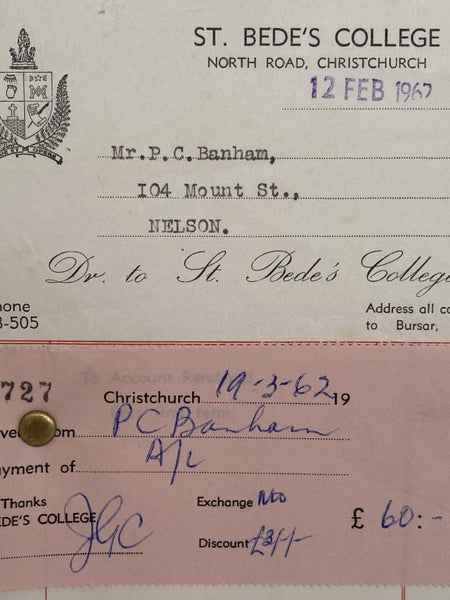 ST. BEDE'S COLLEGE
NORTH ROAD, CHRISTCHURCH
12 FEB 1962
Mr.P.C.Banham,
104 Mount St.,
NELSON.
Dr. to St. Bede's College
hone
-505
Address all co
to Bursar,
727
Christchurch 19-3-62 19
ve om P C Banham
yment of A/c
Thanks
EDE'S COLLEGE JGC
Exchange
Discount
£ 60:-